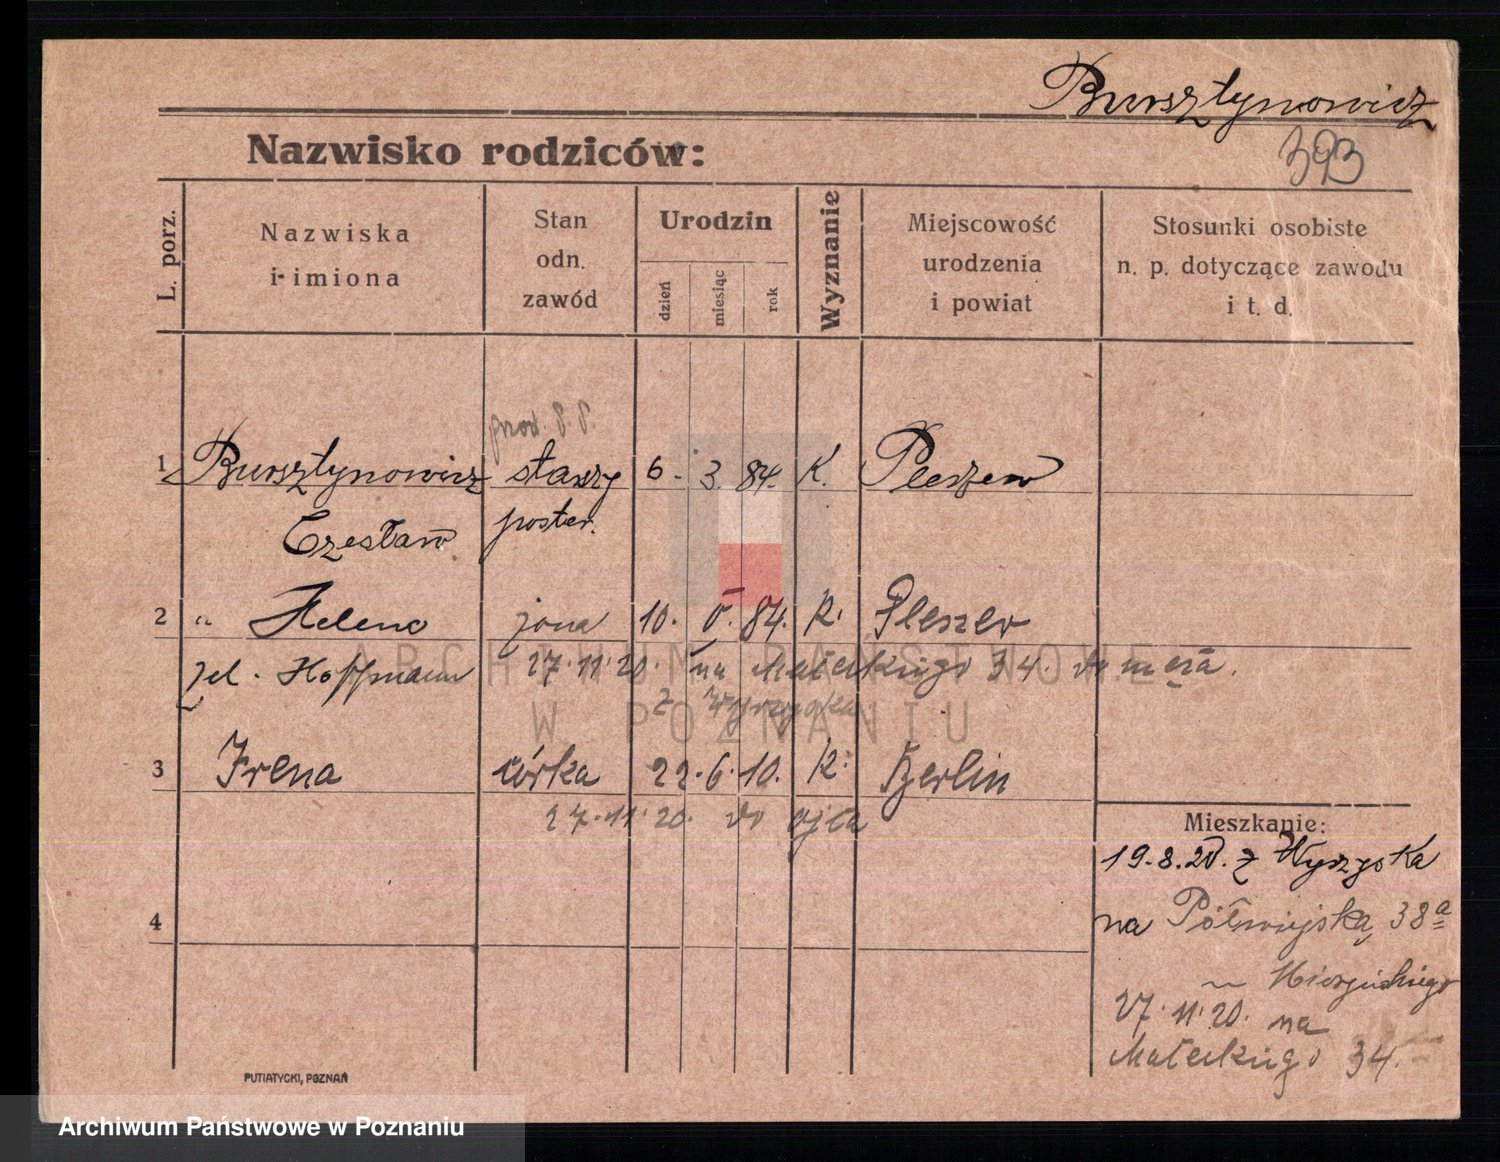 Bursztynowicz
393
Nazwisko rodziców:
L. porz.
Nazwiska
i imiona
Stan
odn.
zawód
Urodzin
dzień
miesiąc
rok
Wyznanie
Miejscowość
urodzenia
i powiat
Stosunki osobiste
n. p. dotyczące zawodu
i t. d.
przod. P. P.
1 Bursztynowicz starszy 6. 3. 84. K. Pleszew
Czesław poster.
2 " Helena żona 10. V. 84. K. Pleszew
zd. Hoffmann 27.11.20. na Małeckiego 34. do męża.
z Wyrzyska
3 Irena córka 22. 6. 10. K. Berlin
27.11.20. do ojca
4
Mieszkanie:
19.8.20. z Wyrzyska
na Półwiejską 38a
27.11.20. na
Małeckiego 34.
PUTIATYCKI, POZNAŃ
ARCHIWUM PAŃSTWOWE
W POZNANIU
Archiwum Państwowe w Poznaniu